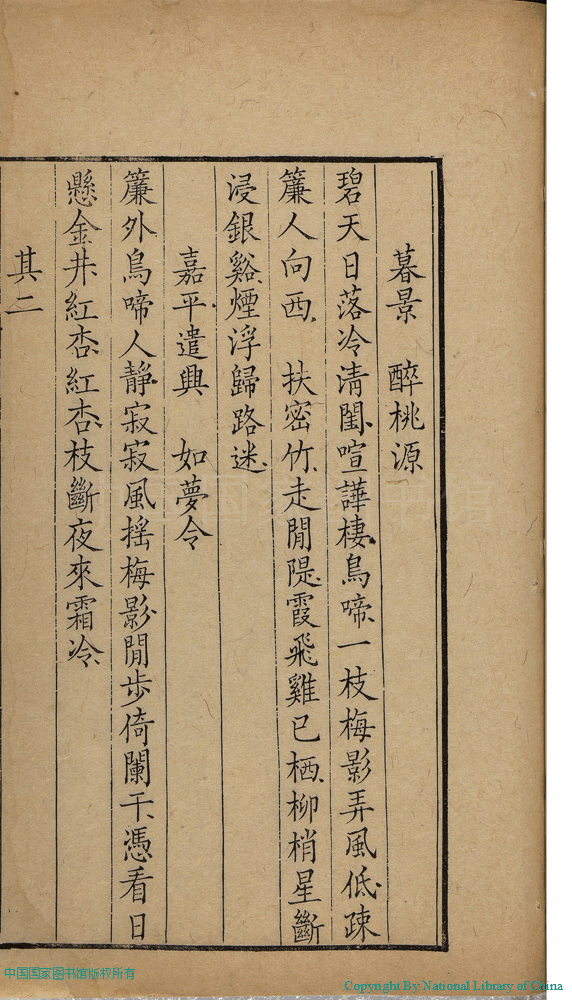 暮景　醉桃源
碧天日落冷清閨、喧譁棲鳥啼、一枝梅影弄風低、疎
簾人向西、　扶密竹、走閒隄、霞飛雞已栖、柳梢星斷
浸銀谿、煙浮歸路迷、
嘉平遣興　如夢令
簾外鳥啼人靜、寂寂風摇梅影、閒步倚闌干、憑看日
懸金井、紅杏、紅杏、枝斷夜來霜冷、
其二
中国国家图书馆版权所有
Copyright By National Library of China